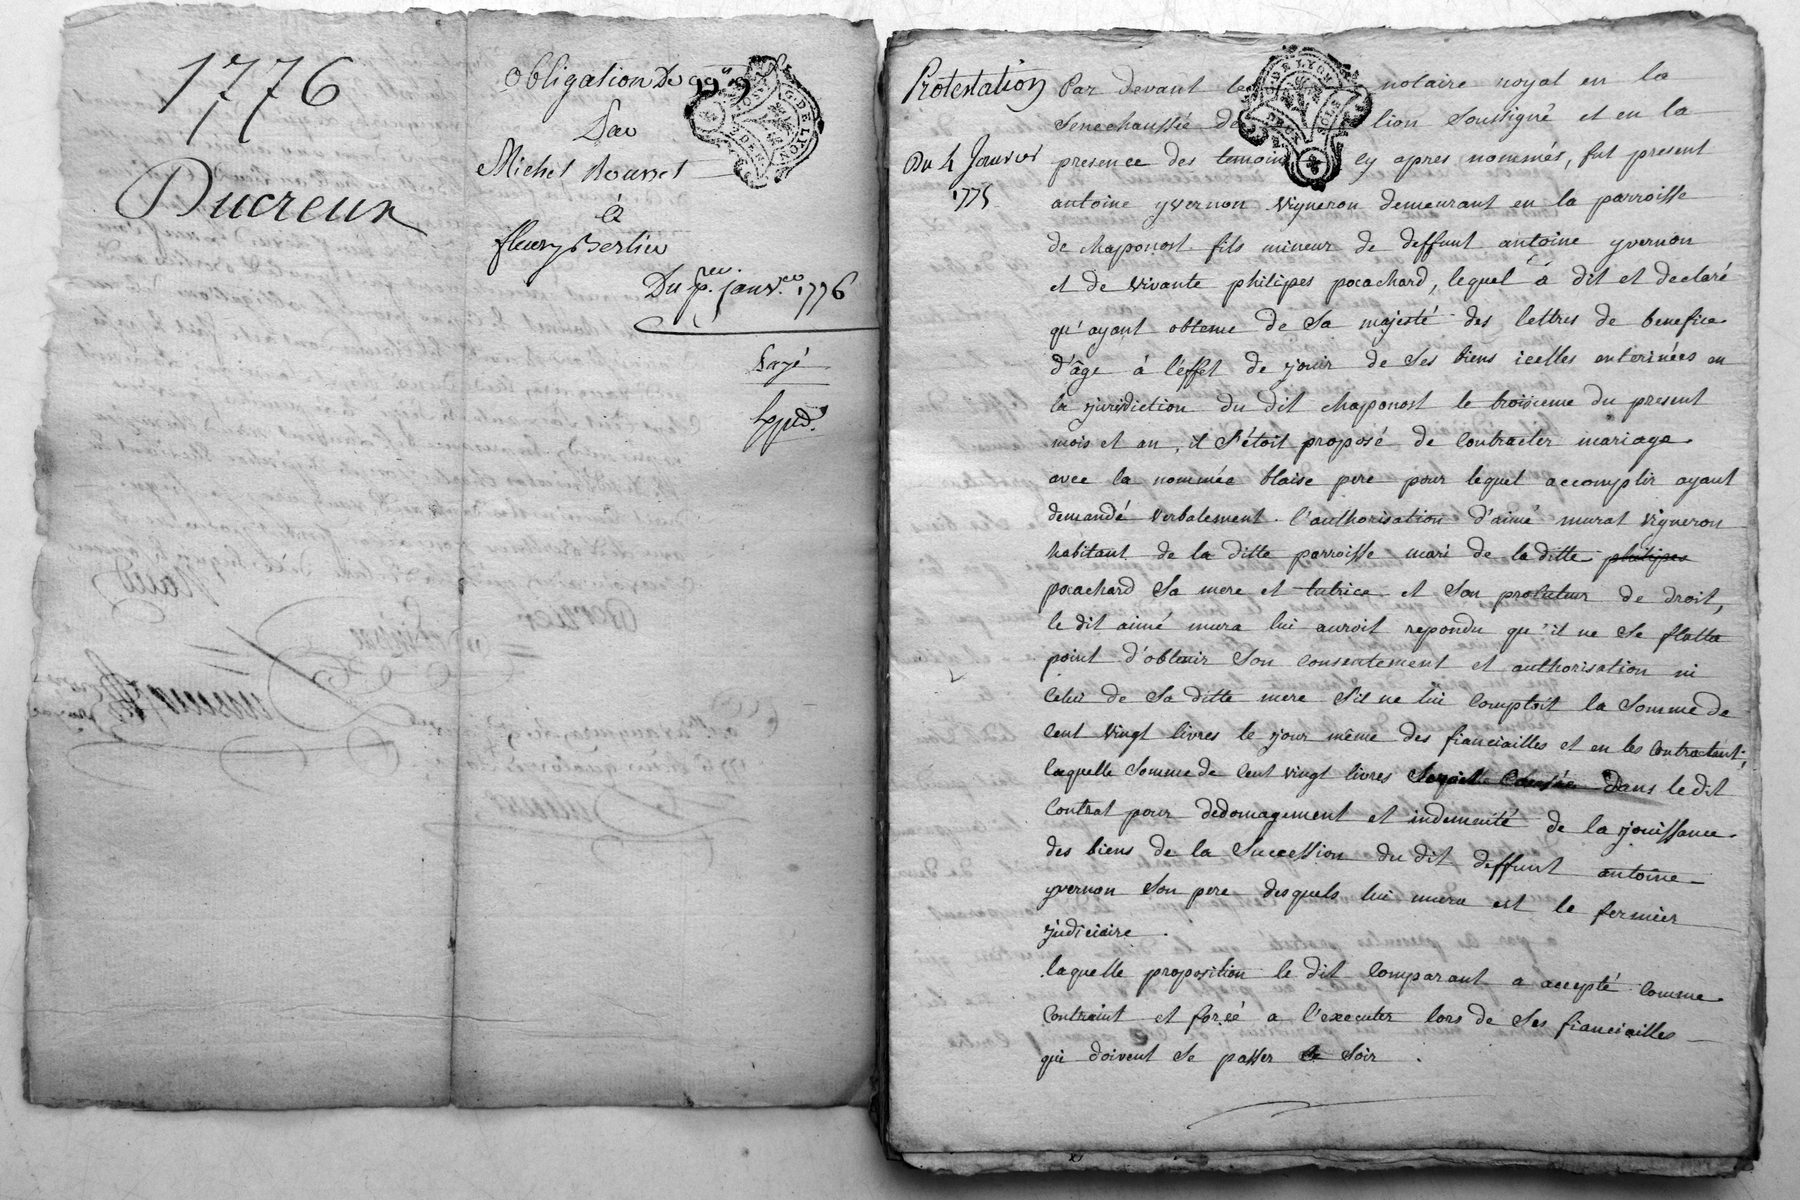 1776
Ducreux
Obligation De 99
Par
Michel
à
fleury Berlier
Du p.er janv.er 1776
Payé
Expéd.
G. DE LYON
DEUX SOLS
Protestation
Du 4 Janvier
1775
Par devant le notaire royal en la
Senechaussée de lion Soussigné et en la
presence des temoins cy apres nommés, fut present
antoine yvernon vigneron demeurant en la parroisse
de chaponost fils mineur de deffunt antoine yvernon
et de vivante philipes pocachard, lequel a dit et declaré
qu'ayant obtenu de Sa majesté des lettres de benefice
d'âge à l'effet de jouir de Ses biens icelles enterinées en
la jurisdiction du dit chaponost le troisieme du present
mois et an, il S'étoit proposé de Contracter mariage
avec la nommée blaise pere pour lequel accomplir ayant
demandé verbalement l'authorisation d'aimé murat vigneron
habitant de la ditte parroisse mari de la ditte philipes
pocachard Sa mere et tutrice et Son protuteur de droit,
le dit aimé mura lui auroit repondu qu'il ne Se flatta
point d'obtenir Son Consentement et authorisation ni
Celui de Sa ditte mere S'il ne lui Comptoit la Somme de
Cent vingt livres le jour même des fianciailles et en les Contractant;
laquelle Somme de Cent vingt livres Dans le dit
Contrat pour dedomagement et indemnité de la jouissance
des biens de la Succession du dit deffunt antoine
yvernon Son pere desquels lui mura est le fermier
judiciaire.
laquelle proposition le dit Comparant a accepté Comme
Contraint et forcé a l'executer lors de Ses fianciailles
qui doivent Se passer Ce Soir.